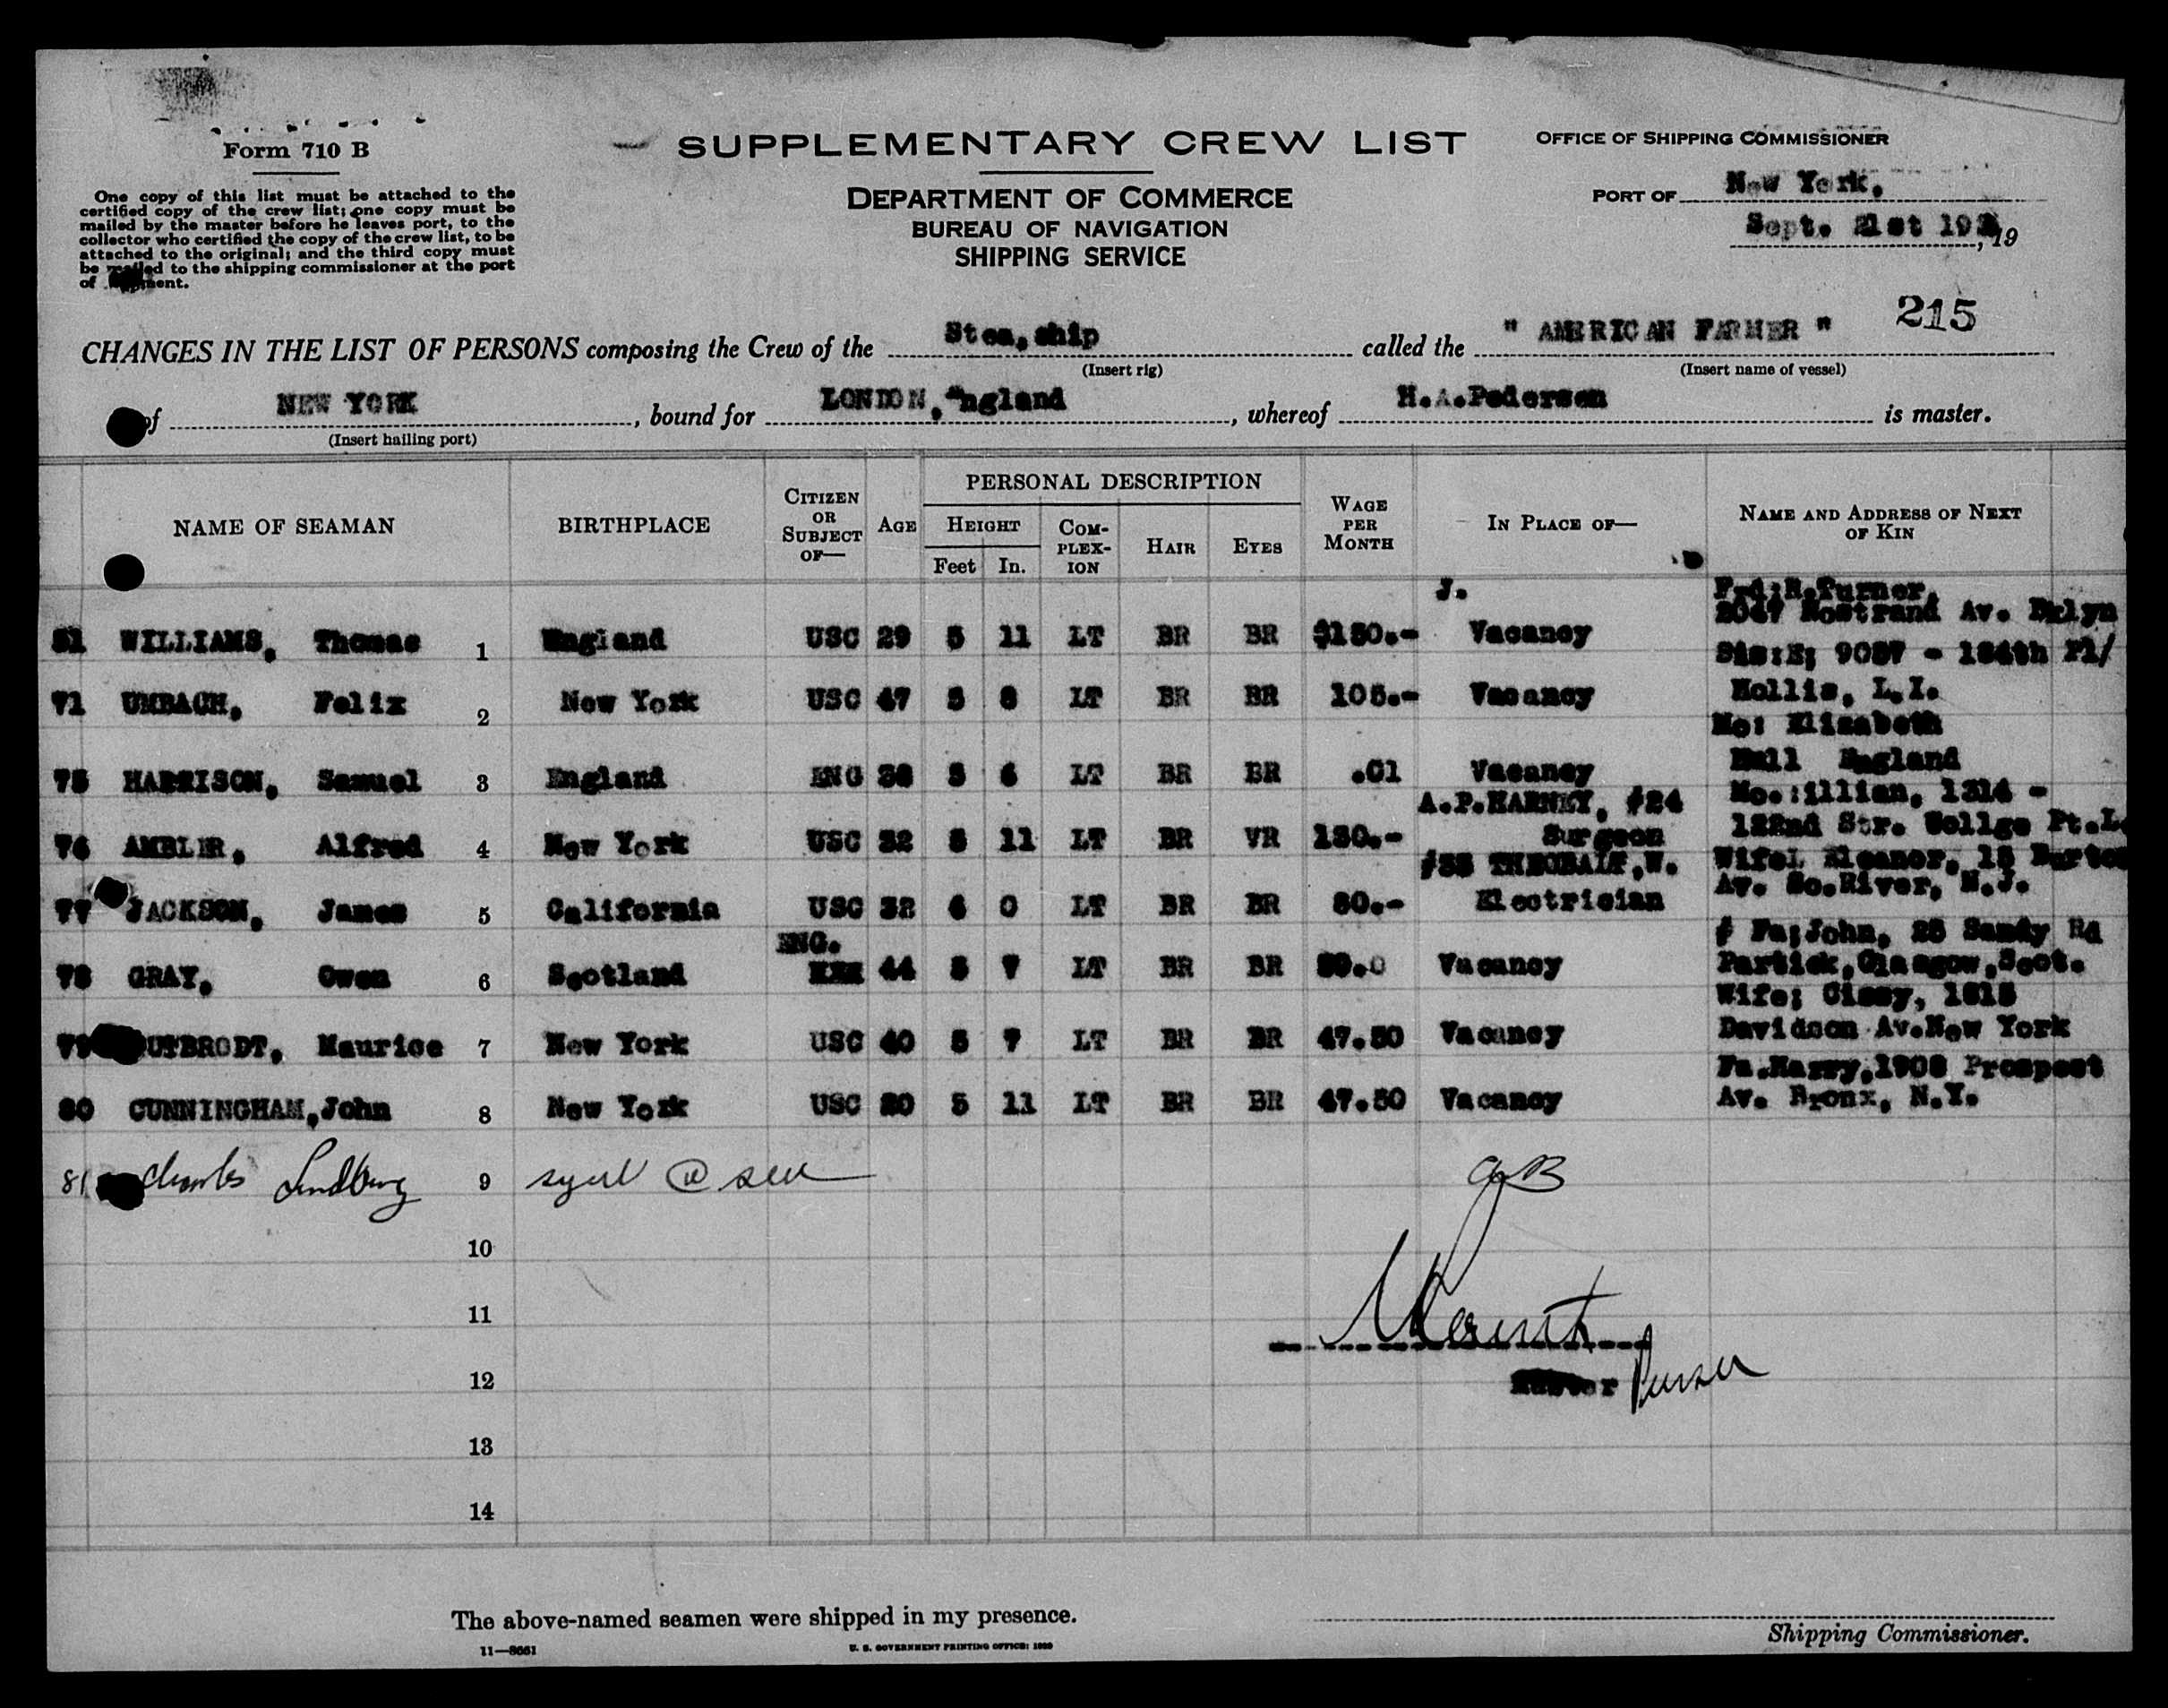 Form 710 B
One copy of this list must be attached to the
certified copy of the crew list; one copy must be
mailed by the master before he leaves port, to the
collector who certified the copy of the crew list, to be
attached to the original; and the third copy must
be mailed to the shipping commissioner at the port
of
SUPPLEMENTARY CREW LIST
DEPARTMENT OF COMMERCE
BUREAU OF NAVIGATION
SHIPPING SERVICE
OFFICE OF SHIPPING COMMISSIONER
PORT OF New York,
Sept. 21st 193 , 19
215
CHANGES IN THE LIST OF PERSONS composing the Crew of the Stea,ship called the " AMERICAN FARMER "
(Insert rig) (Insert name of vessel)
of NEW YORK , bound for LONDON, England , whereof H.A.Pedersen is master.
(Insert hailing port)
NAME OF SEAMAN BIRTHPLACE CITIZEN OR SUBJECT OF— AGE PERSONAL DESCRIPTION HEIGHT Feet In. COMPLEXION HAIR EYES WAGE PER MONTH IN PLACE OF— NAME AND ADDRESS OF NEXT OF KIN
J. Frd:R.Turner,
2047 Nostrand Av. Bklyn
WILLIAMS, Thomas 1 England USC 29 5 11 LT BR BR $150.- Vacancy
Sis:E; 9037 - 184th Pl/
71 UMBACH, Felix 2 New York USC 47 5 8 LT BR BR 105.- Vacancy Hollis, L.I.
Mo: Elizabeth
75 HARRISON, Samuel 3 England ENG 38 5 6 LT BR BR .01 Vacancy Hull England
A.P.HARNEY, #24 Mo.:illian, 1314 -
76 AMBLER, Alfred 4 New York USC 32 5 11 LT BR VR 130.- Surgeon 122nd Str. Collge Pt.L
#35 THEOBALT,W. Wife: Eleanor, 15 Burton
77 JACKSON, James 5 California USC 32 6 0 LT BR BR 80.- Electrician Av. So.River, N.J.
ENG. # Fa;John, 25 Sandy Rd
78 GRAY, Owen 6 Scotland 44 5 7 LT BR BR Vacancy Partick,Glasgow,Scot.
Wife; Cissy, 1815
79 UTBRODT, Maurice 7 New York USC 40 5 7 LT BR BR 47.50 Vacancy Davidson Av.New York
Fa.Harry,1908 Prospect
80 CUNNINGHAM,John 8 New York USC 20 5 11 LT BR BR 47.50 Vacancy Av. Bronx, N.Y.
81 Charles Lindberg 9 @ sea
10
11
12 Purser
13
14
The above-named seamen were shipped in my presence.
Shipping Commissioner.
11—8661 U. S. GOVERNMENT PRINTING OFFICE: